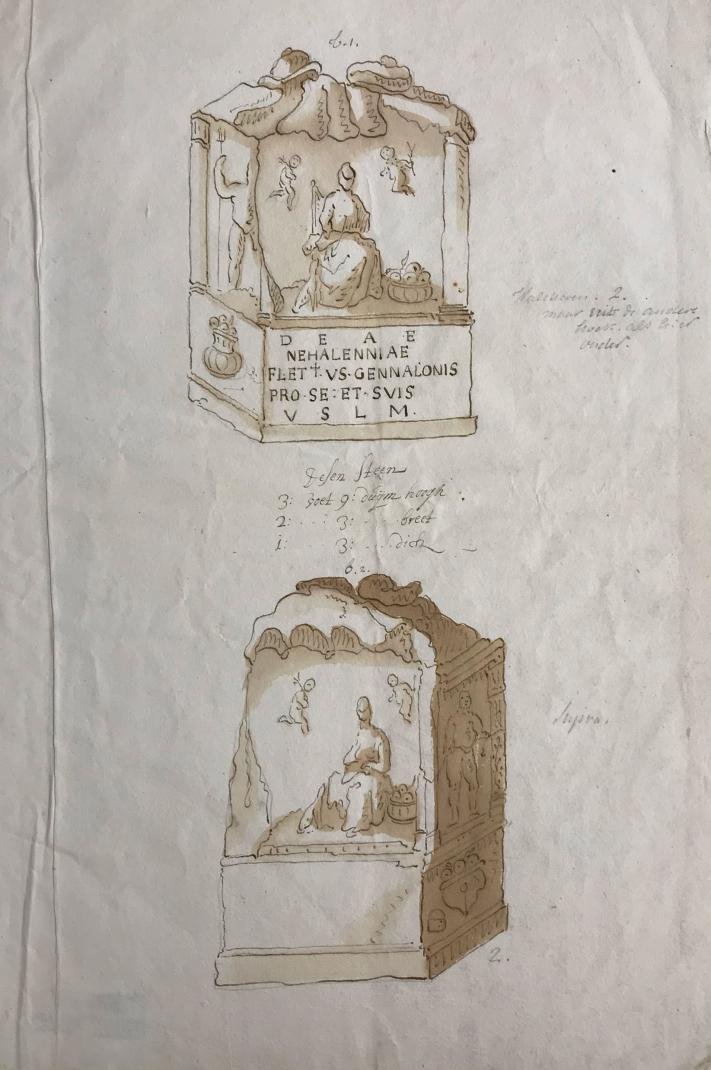 b.1.
D E A E
NEHALENNIAE
FLETT VS·GENNALONIS
PRO·SE:ET·SVIS
V S L M.
2.
maer uit de andere
als
onder.
desen steen
3: voet 9: duijm hoogh.
2: ... 3: ... breet
1: 3: ... dick
b.2.
Supra.
2.